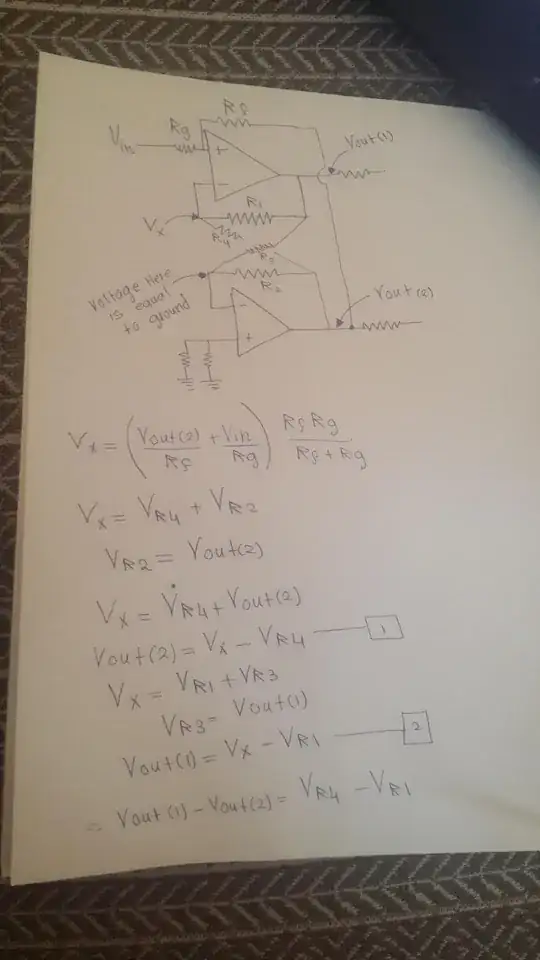 Rf
Vin Rg + Vout(1)
-
Vx R1
R4
R3
Voltage Here is equal to ground R2
- Vout(2)
+
Vx = (Vout(2)/Rf + Vin/Rg) RfRg/Rf+Rg
Vx = VR4 + VR2
VR2 = Vout(2)
Vx = VR4 + Vout(2)
Vout(2) = Vx - VR4 1
Vx = VR1 + VR3
VR3 = Vout(1)
Vout(1) = Vx - VR1 2
Vout(1) - Vout(2) = VR4 - VR1